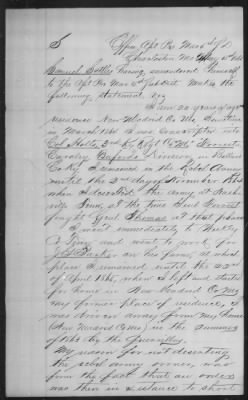 S Office Ast Pro Mar 6th S D
Charleston Mo May 6th 1865
Samuel Settles Having surrendered himself
to the Ast Pro Mar 6th Sub Dist Makes the
following statement, viz
I am 20 years of age
residence New Madrid Co Mo
in March 186 I was conscripted into
Col 2nd Ky Regt Co "H" Forrests
Cavalry Bufords Division in Ballard
Co Ky I remained in the Rebel Army
until the 2nd day of November 1864
when I deserted the army at Nash-
ville Tenn, at the time Genl Forrest
fought Genl Thomas at that place
I went immediately to
Tenn and went to work for
on his farm, at which
place I remained until the 22nd
of April 1865, when I left and started
for home in New Madrid Co Mo
my former place of residence, I
was driven away from my home
(New Madrid Co Mo) in the summer
of 1863 by the Guerrillas
My reason for not deserting
the rebel army sooner, was
from the fact that an order
was then in existance to shoot